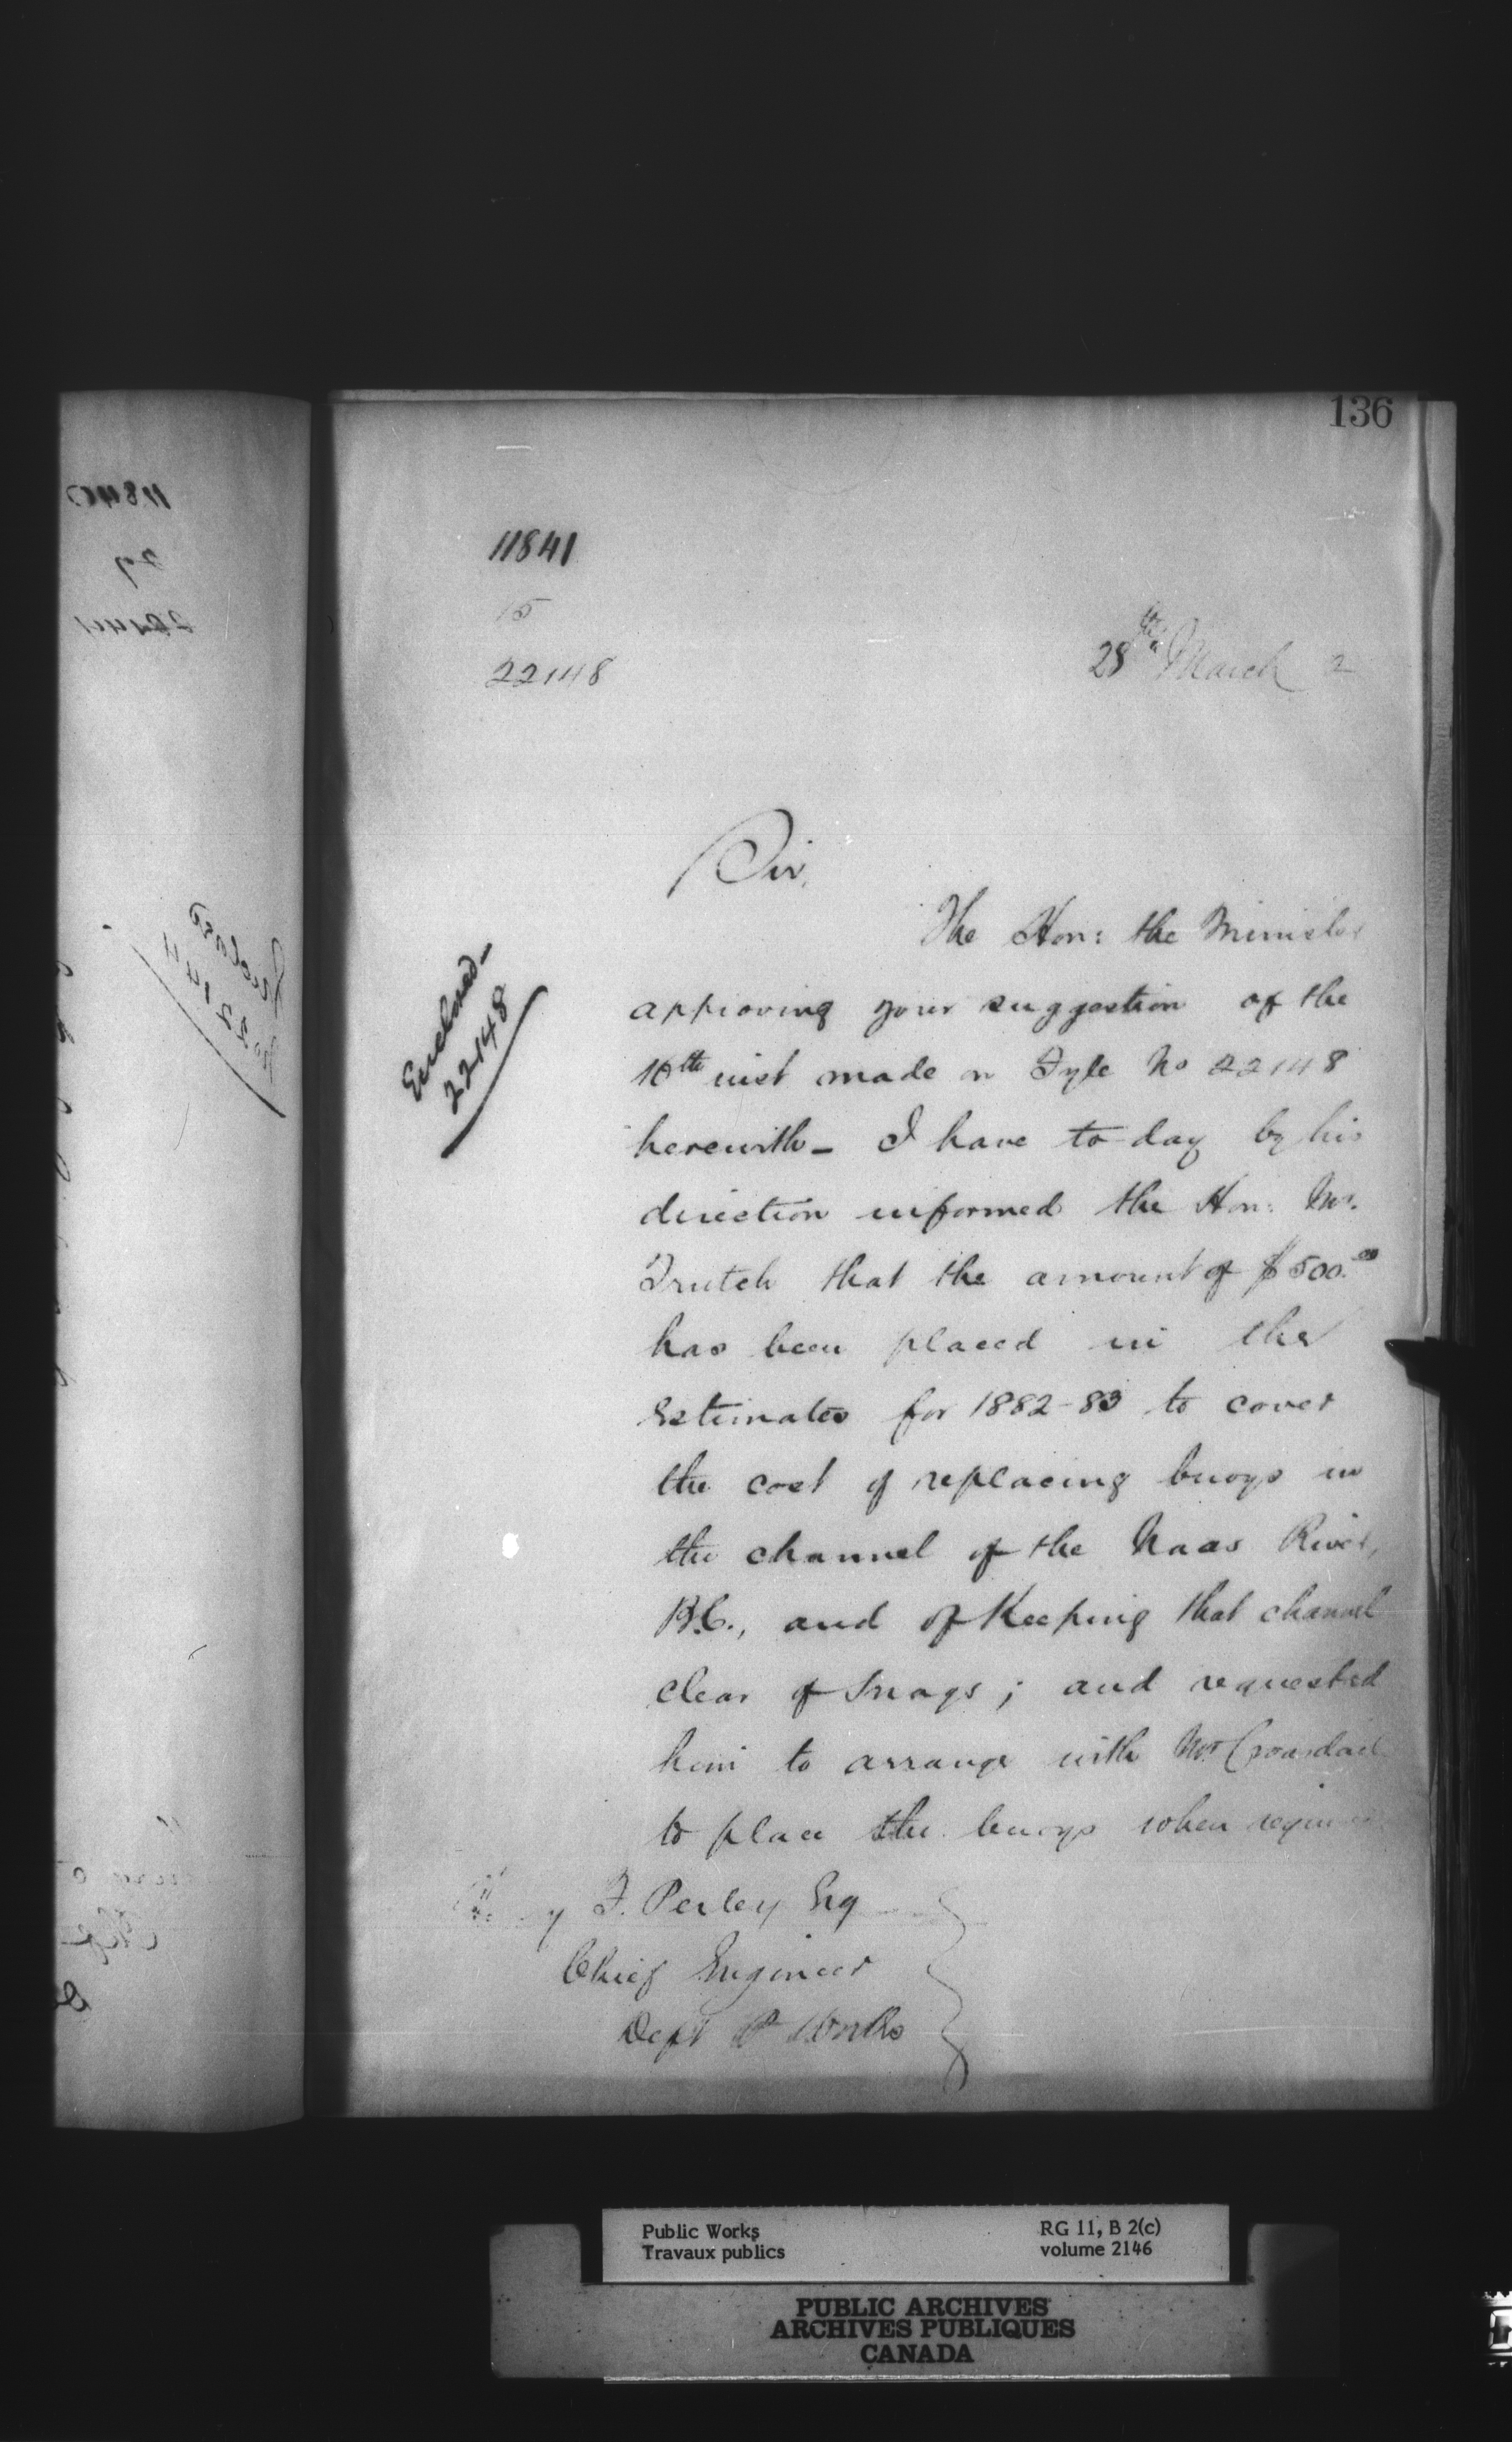 136
11841
15
22148
28th March 2
Sir,
Enclosed-
22148
The Hon: the Minister
approving your suggestion of the
16th inst made on Fyle No 22148
herewith - I have to-day by his
direction informed the Hon: Mr.
Trutch that the amount of $500.00
has been placed in the
Estimates for 1882-83 to cover
the cost of replacing buoys in
the channel of the Naas River,
B.C., and of Keeping that channel
clear of Snags; and requested
him to arrange with Mr Croasdail
to place the buoys when
F. Perley Esq
Chief Engineer
Dept P Works
Public Works
Travaux publics
RG 11, B 2(c)
volume 2146
PUBLIC ARCHIVES
ARCHIVES PUBLIQUES
CANADA